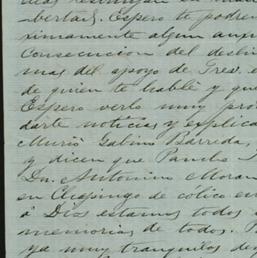 bertad. Espero te podre
ximamente algun aux
Consecucion del desti
mas del apoyo de Tres.
de quien te hablé y que
Espero verlo muy pro
darte noticias y explica
Murió Gabino Barreda,
y dicen que Pancho
Dn. Antonino Moran
en Chapingo de cólico en
á Dios estamos todos
memorias de todos. P
ya muy tranquilos de